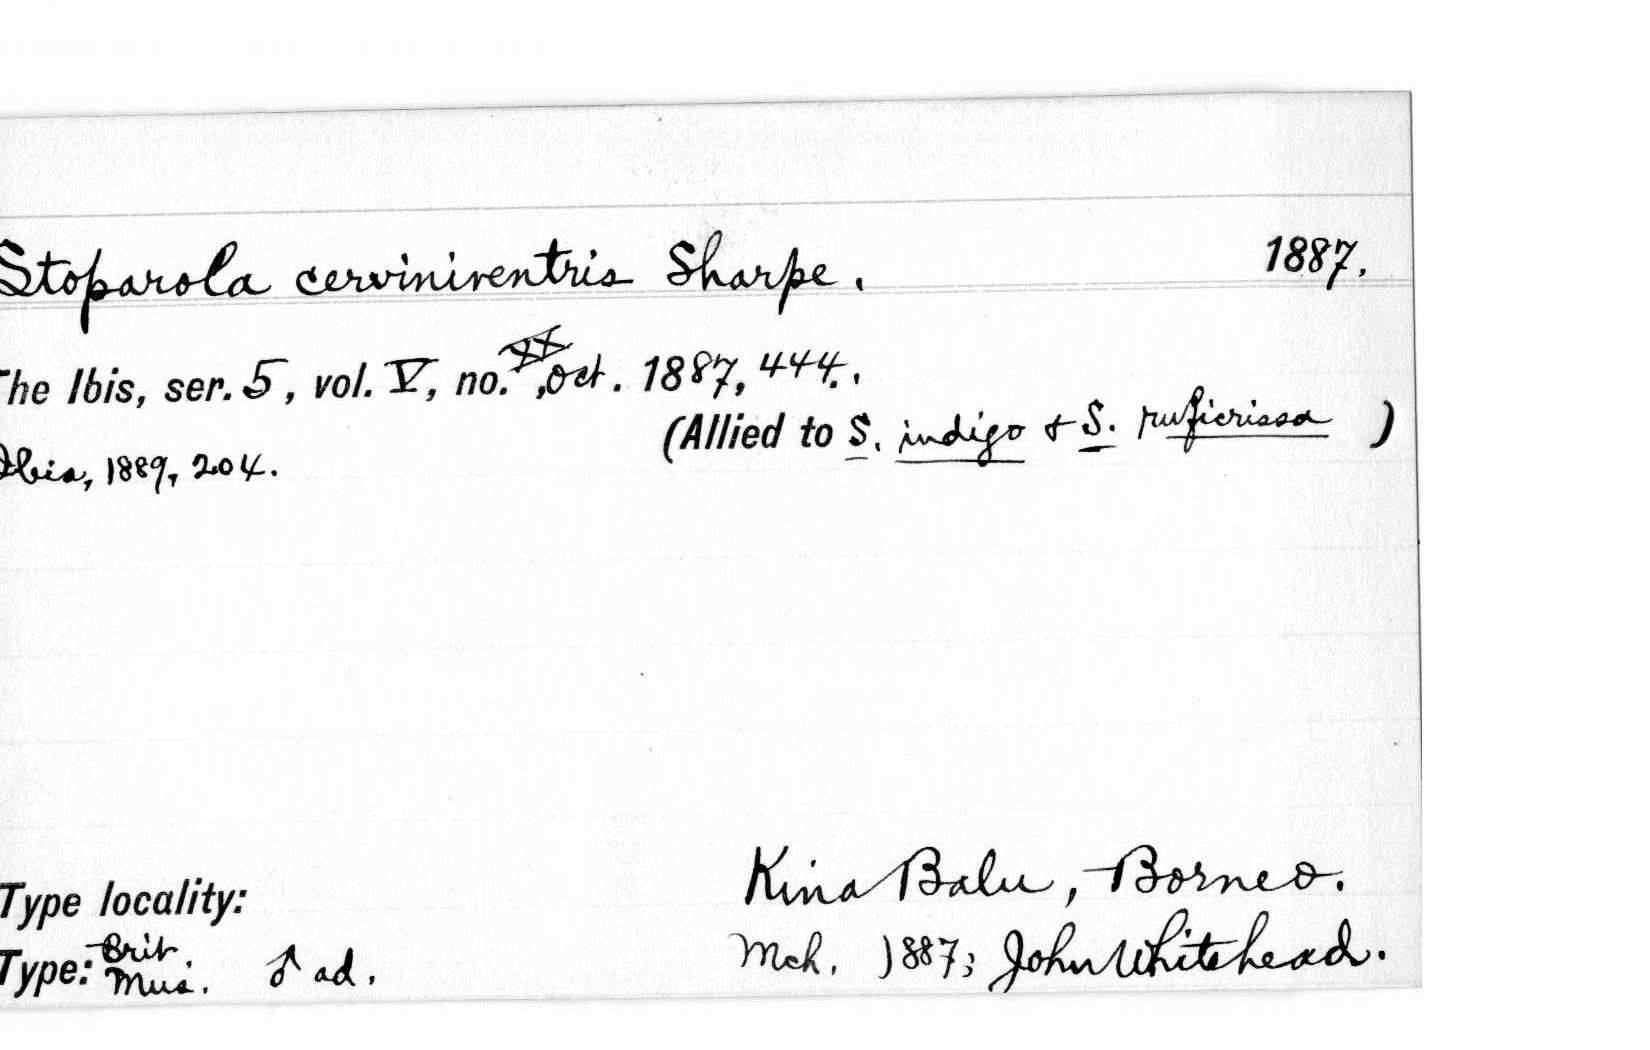 Stoparola cerviniventris Sharpe. 1887.
The Ibis, ser. 5, vol. V, no. XX, Oct. 1887, 444.
(Allied to S. indigo & S. ruficrissa )
Ibis, 1889, 204.
Type locality: Kina Balu, Borneo.
Type: Brit. Mus. ♂ ad. Mch. 1887; John Whitehead.